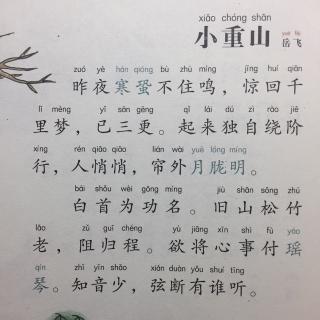 xiǎo chóng shān
小重山
yuè fēi
岳飞
zuó yè hán qióng bù zhù míng jīng huí qiān
昨夜寒蛩不住鸣，惊回千
lǐ mèng yǐ sān gēng qǐ lái dú zì rào jiē
里梦，已三更。起来独自绕阶
xíng rén qiāo qiāo lián wài yuè lóng míng
行，人悄悄，帘外月胧明。
bái shǒu wèi gōng míng jiù shān sōng zhú
白首为功名。旧山松竹
lǎo zǔ guī chéng yù jiāng xīn shì fù yáo
老，阻归程。欲将心事付瑶
qín zhī yīn shǎo xián duàn yǒu shuí tīng
琴。知音少，弦断有谁听。